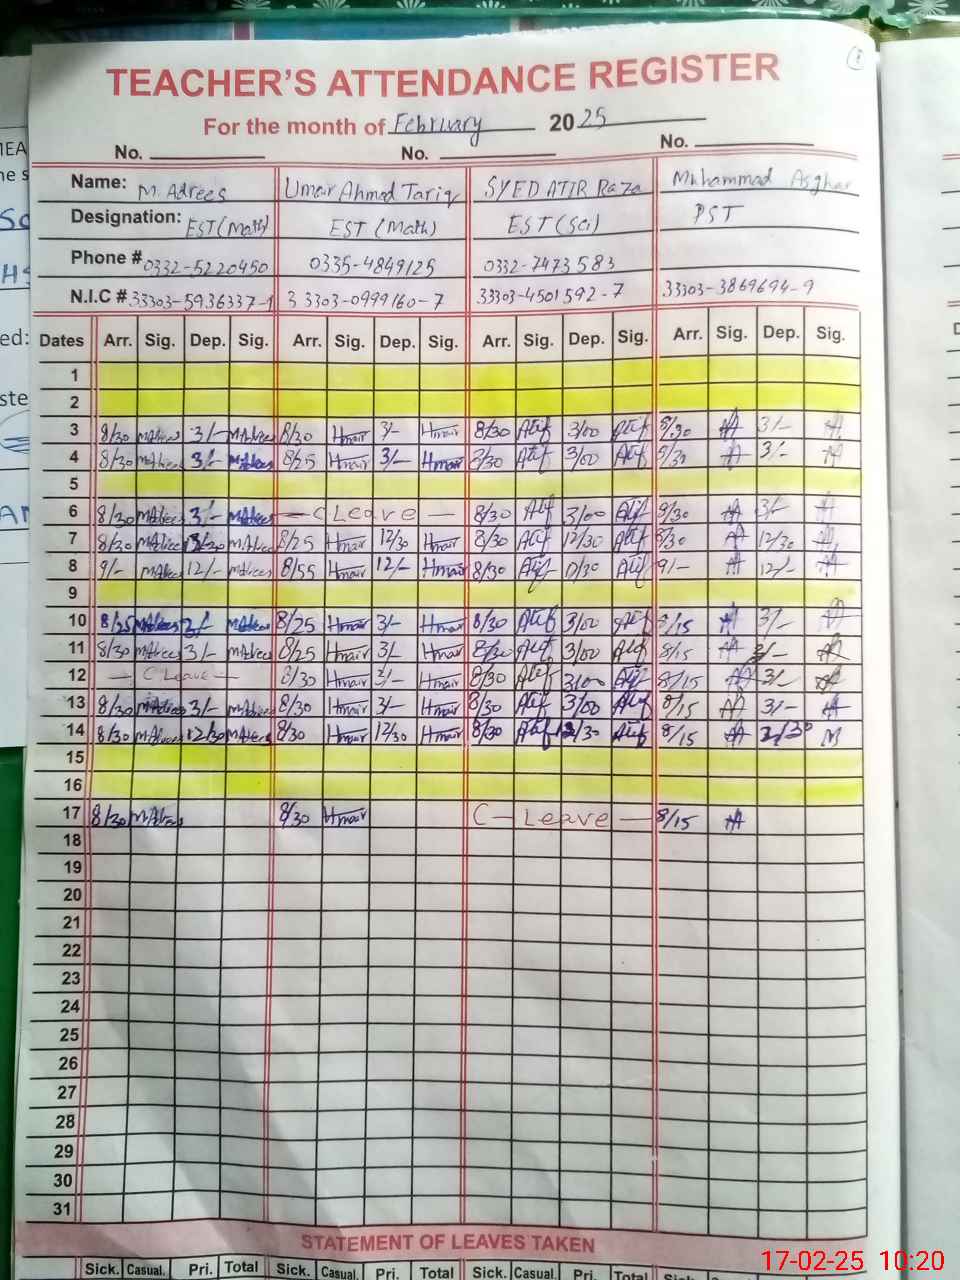 TEACHER'S ATTENDANCE REGISTER
For the month of February 2025
No. No. No.
Name: M. Adrees Umair Ahmed Tariq SYED ATIR Raza Muhammad Asghar
Designation: EST (Math) EST (Math) EST (Sci) PST
Phone # 0332-5220450 0335-4849125 0332-7473583
N.I.C # 33303-5936337-1 33303-0999160-7 33303-4501592-7 33303-3869694-9
Dates Arr. Sig. Dep. Sig. Arr. Sig. Dep. Sig. Arr. Sig. Dep. Sig. Arr. Sig. Dep. Sig.
1
2
3 8/30 MAdrees 3/- MAdrees 8/30 Umair 3/- Umair 8/30 Atif 3/00 Atif 8/30 3/-
4 8/30 MAdrees 3/- MAdrees 8/25 Umair 3/- Umair 8/30 Atif 3/00 Atif 8/30 3/-
5
6 8/30 MAdrees 3/- MAdrees - C Leave - 8/30 Atif 3/00 Atif 3/-
7 8/30 MAdrees MAdrees 8/25 Umair 12/30 Umair 8/30 Atif 12/30 Atif 8/30 12/30
8 9/- MAdrees 12/- MAdrees 8/55 Umair 12/- Umair 8/30 Atif Atif 9/- 12/-
9
10 8/25 MAdrees 3/- MAdrees 8/25 Umair 3/- Umair 8/30 Atif 3/00 Atif 8/15 3/-
11 8/30 MAdrees 3/- MAdrees 8/25 Umair 3/- Umair 8/30 Atif 3/00 Atif 8/15 3/-
12 - C Leave - 8/30 Umair 3/- Umair 8/30 Atif 3/00 Atif 8/15 3/-
13 8/30 MAdrees 3/- MAdrees 8/30 Umair 3/- Umair 8/30 Atif 3/00 Atif 8/15 3/-
14 8/30 MAdrees 12/30 MAdrees 8/30 Umair 12/30 Umair 8/30 Atif 12/30 Atif 8/15
15
16
17 8/30 MAdrees 8/30 Umair C - Leave - 8/15
18
19
20
21
22
23
24
25
26
27
28
29
30
31
STATEMENT OF LEAVES TAKEN
Sick. Casual. Pri. Total Sick. Casual. Pri. Total Sick. Casual. Pri. Total Sick.
17-02-25 10:20